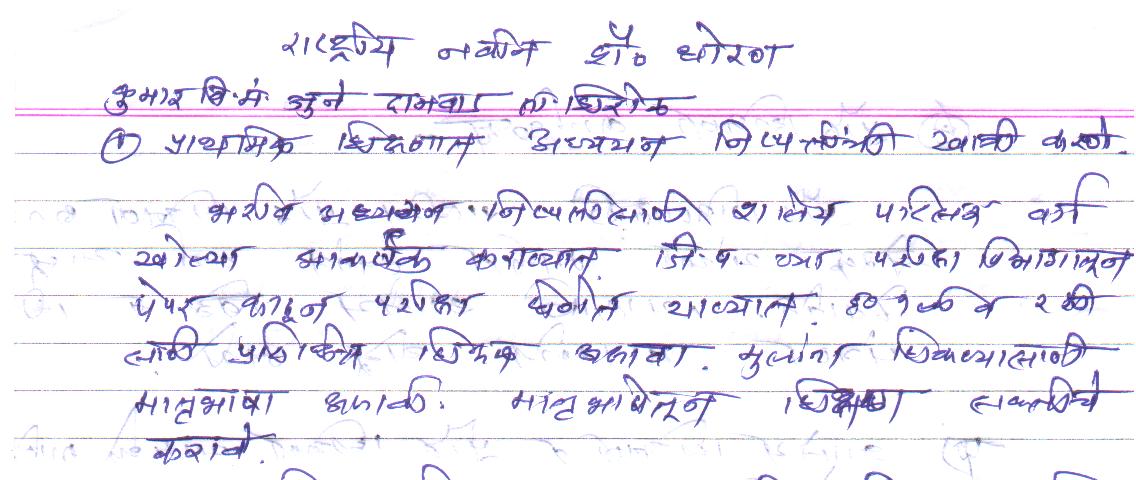 राष्ट्रीय नवीन शै० धोरण
कुमार वि.मं. जुने दानवाड ता. शिरोळ
① प्राथमिक शिक्षणात अध्ययन निष्पत्तींची खात्री करणे.
भरीव अध्ययन निष्पत्तीसाठी शालेय परिसर वर्ग
खोल्या आकर्षक कराव्यात. जि.प. च्या परीक्षा विभागातून
पेपर काढून परीक्षा घेणेत याव्यात. इ० १ ली व २ री
साठी प्रशिक्षित शिक्षक असावा. मुलांना शिकण्यासाठी
मातृभाषा असावी. मातृभाषेतून शिक्षण सक्तीचे
करावे.